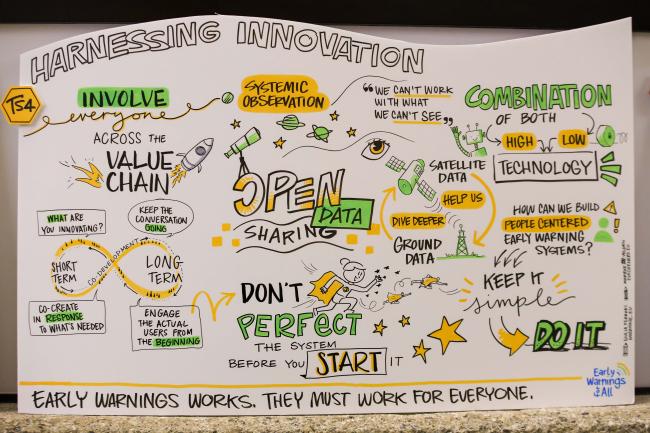 HARNESSING INNOVATION
TS4
INVOLVE
everyone
ACROSS THE
VALUE
CHAIN
WHAT ARE
YOU INNOVATING?
KEEP THE
CONVERSATION
GOING
CO-DEVELOPMENT
SHORT
TERM
LONG
TERM
CO-CREATE
IN RESPONSE
TO WHAT'S NEEDED
ENGAGE
THE ACTUAL
USERS FROM
THE BEGINNING
SYSTEMIC
OBSERVATION
"WE CAN'T WORK
WITH WHAT
WE CAN'T SEE"
OPEN
DATA
SHARING
SATELLITE
DATA
HELP US
DIVE DEEPER
GROUND
DATA
DON'T
PERFECT
THE SYSTEM
BEFORE YOU START IT
COMBINATION
OF BOTH
HIGH LOW
TECHNOLOGY
HOW CAN WE BUILD
PEOPLE CENTERED
EARLY WARNING
SYSTEMS?
KEEP IT
simple
DO IT
Early
Warnings
for All
EARLY WARNINGS WORKS. THEY MUST WORK FOR EVERYONE.